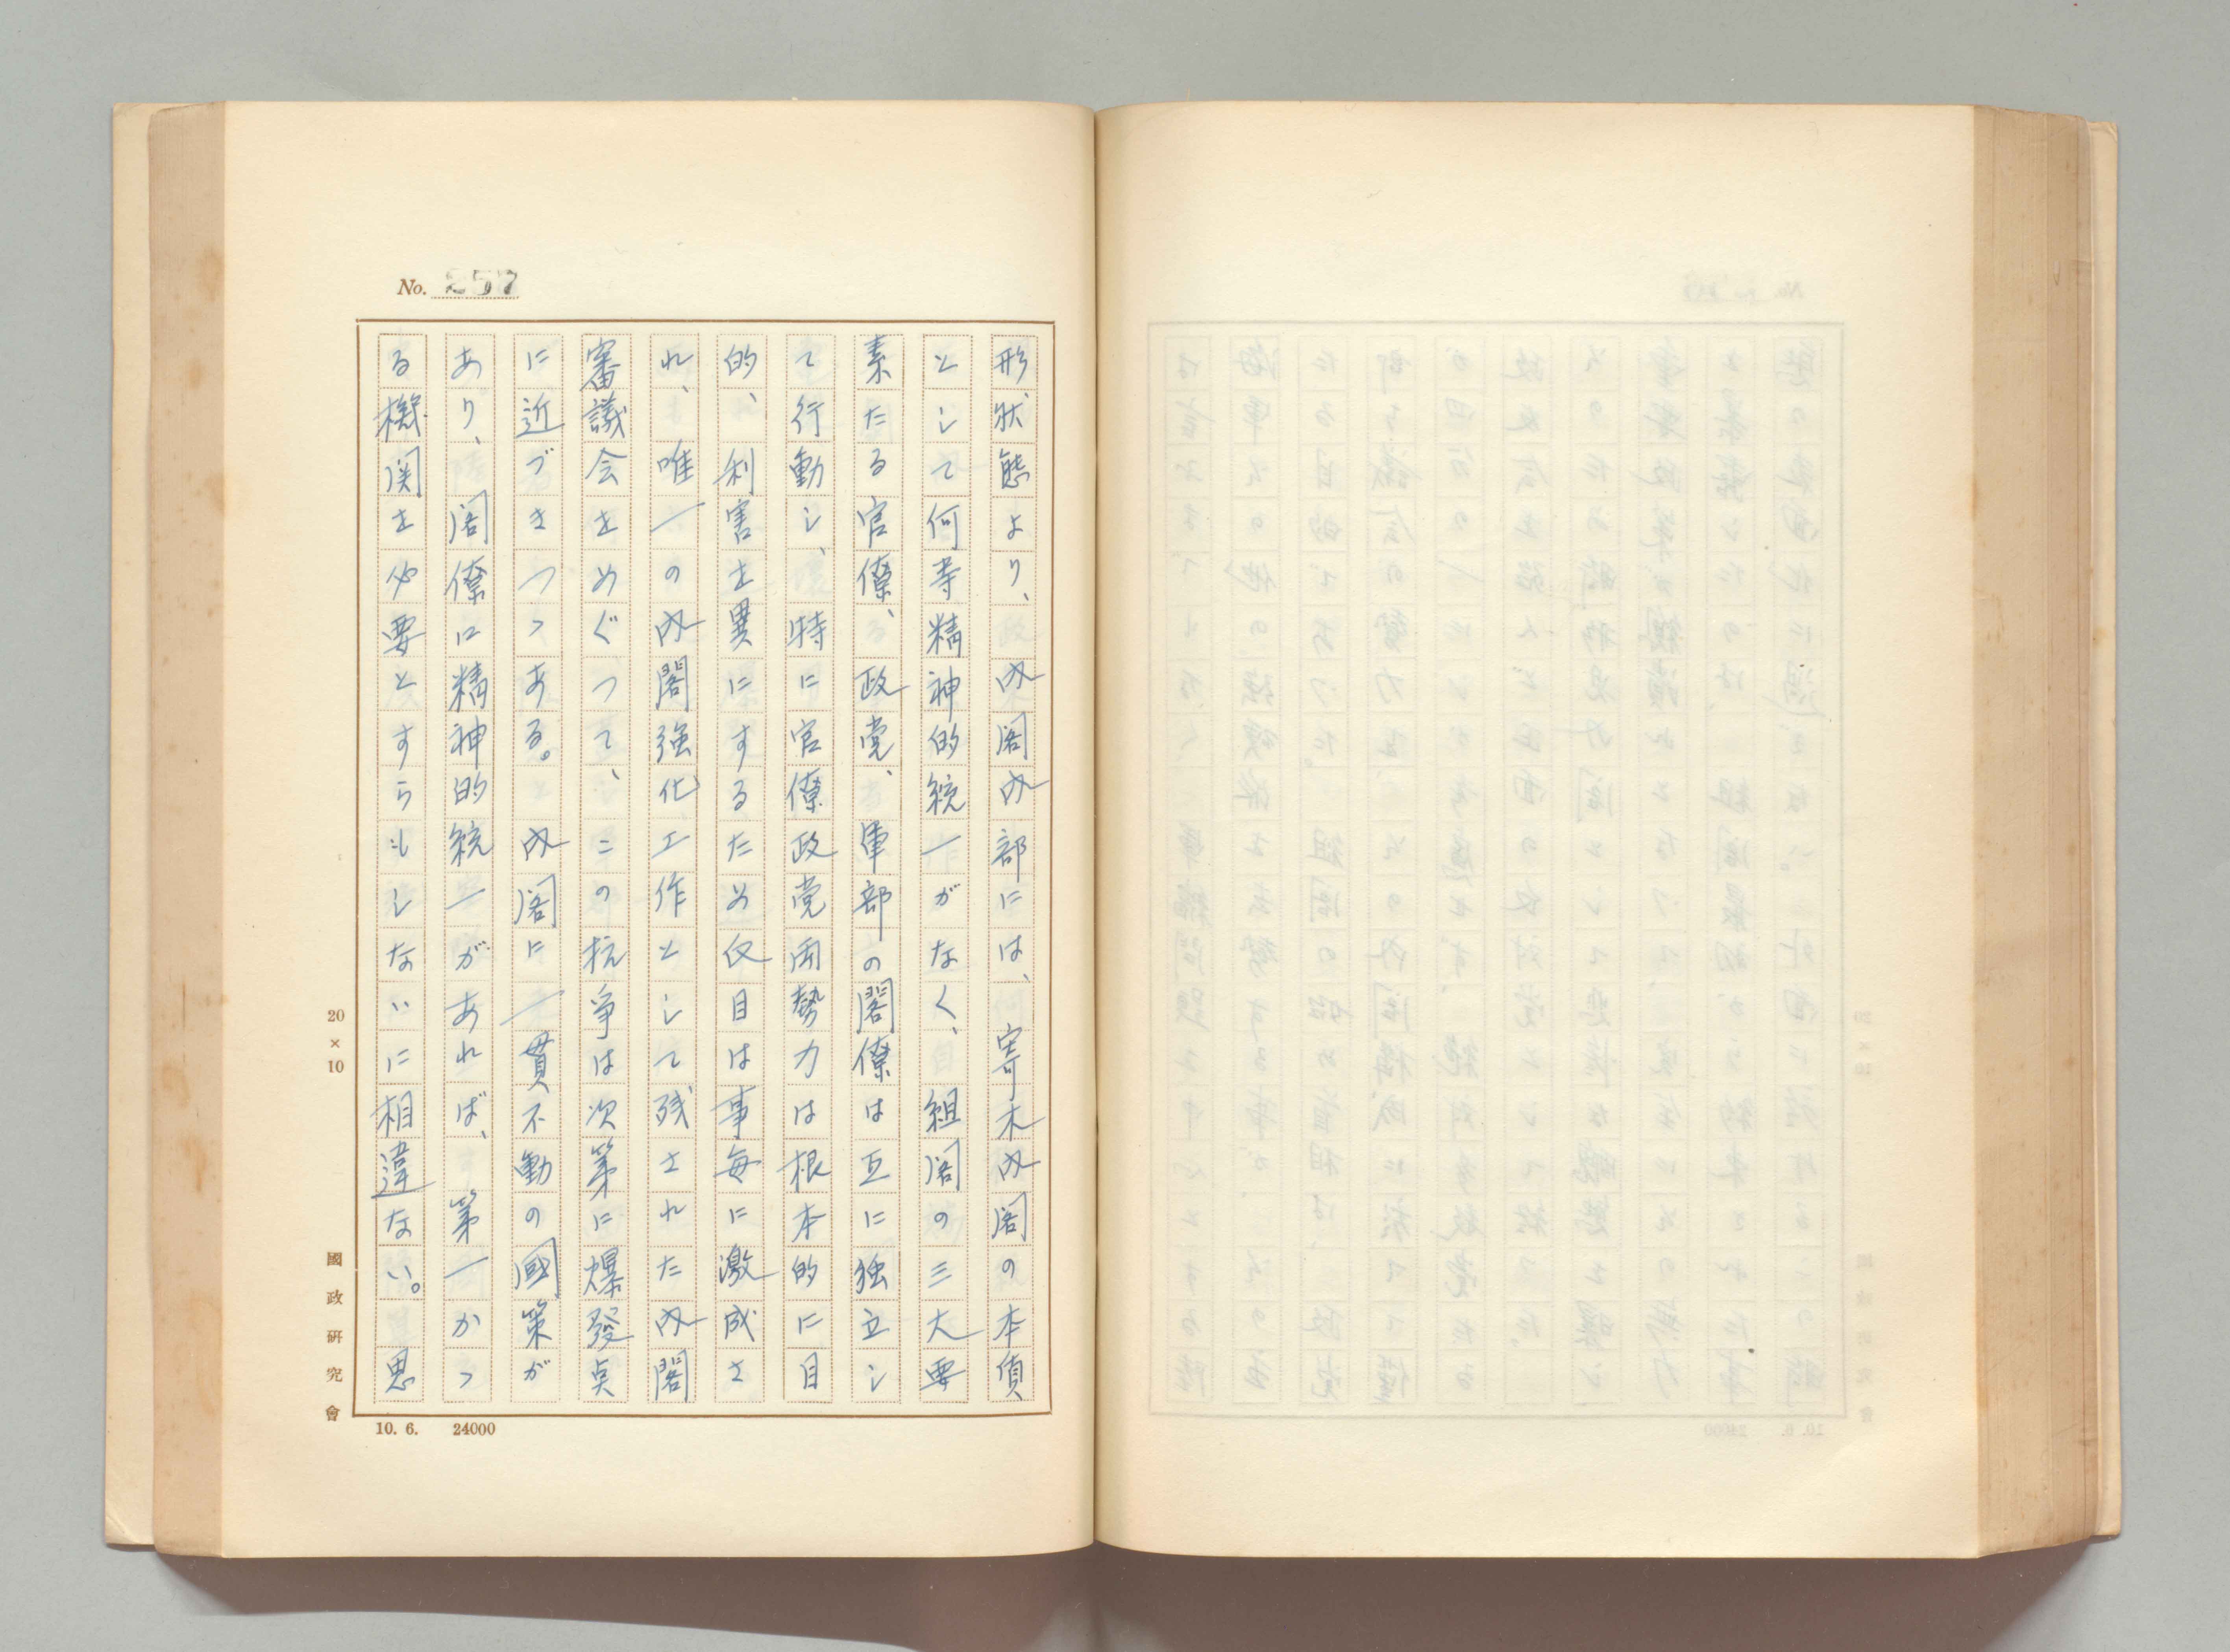 No. 257
形状態より、内閣内部には、寄木内閣の本質
として何等精神的統一がなく、組閣の三大要
素たる官僚、政党、軍部の閣僚は互に独立し
て行動し、特に官僚政党両勢力は根本的に目
的、利害を異にするため反目は事毎に激成さ
れ、唯一の内閣強化工作として残された内閣
審議会をめぐつて、この抗争は次第に爆發点
に近づきつつある。内閣に一貫不動の國策が
あり、閣僚に精神的統一があれば、第一かつ
る機関を必要とすらもしないに相違ない。思
20×10
國政研究會
10. 6. 24000